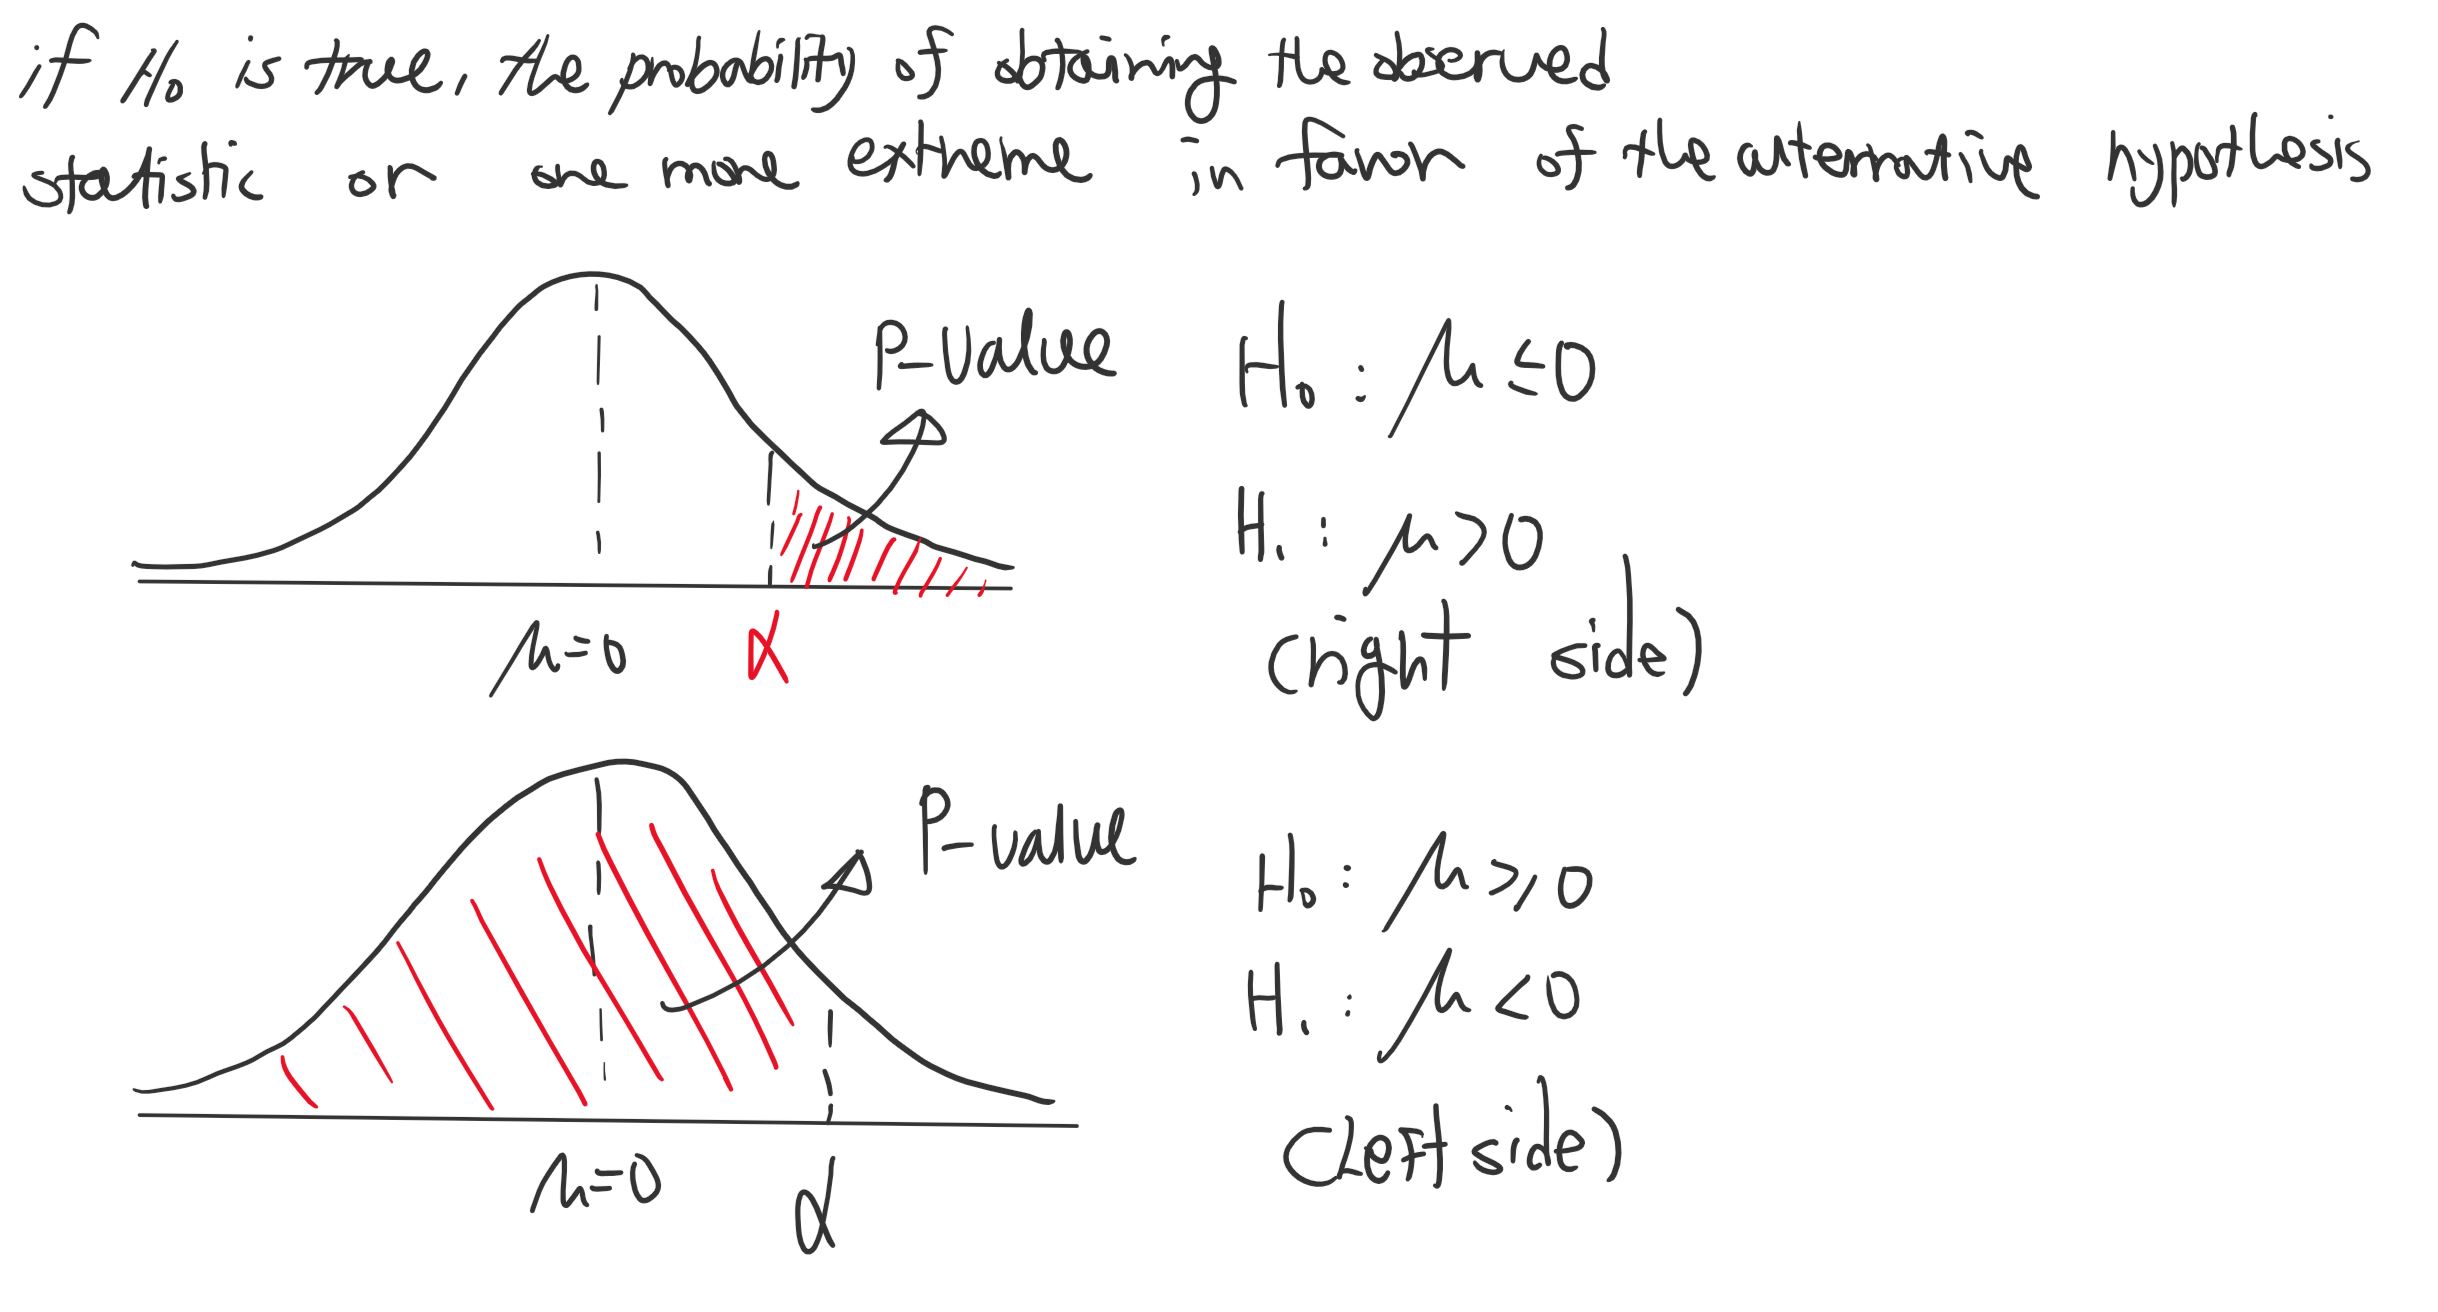 if H₀ is true, the probability of obtaining the observed
statistic or one more extreme in favor of the alternative hypothesis
P-value
H₀ : μ ≤ 0
H₁ : μ > 0
(right side)
μ=0
α
P-value
H₀ : μ ≥ 0
H₁ : μ < 0
(Left side)
μ=0
α